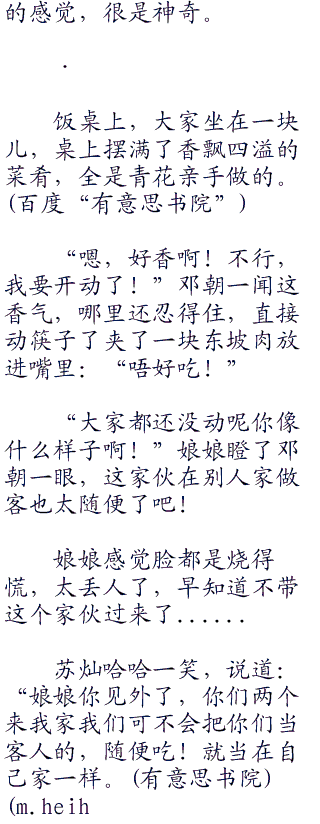 的感觉，很是神奇。
.
饭桌上，大家坐在一块
儿，桌上摆满了香飘四溢的
菜肴，全是青花亲手做的。
(百度“有意思书院”)
“嗯，好香啊！不行，
我要开动了！”邓朝一闻这
香气，哪里还忍得住，直接
动筷子了夹了一块东坡肉放
进嘴里：“唔好吃！”
“大家都还没动呢你像
什么样子啊！”娘娘瞪了邓
朝一眼，这家伙在别人家做
客也太随便了吧！
娘娘感觉脸都是烧得
慌，太丢人了，早知道不带
这个家伙过来了......
苏灿哈哈一笑，说道：
“娘娘你见外了，你们两个
来我家我们可不会把你们当
客人的，随便吃！就当在自
己家一样。(有意思书院)
(m.heih